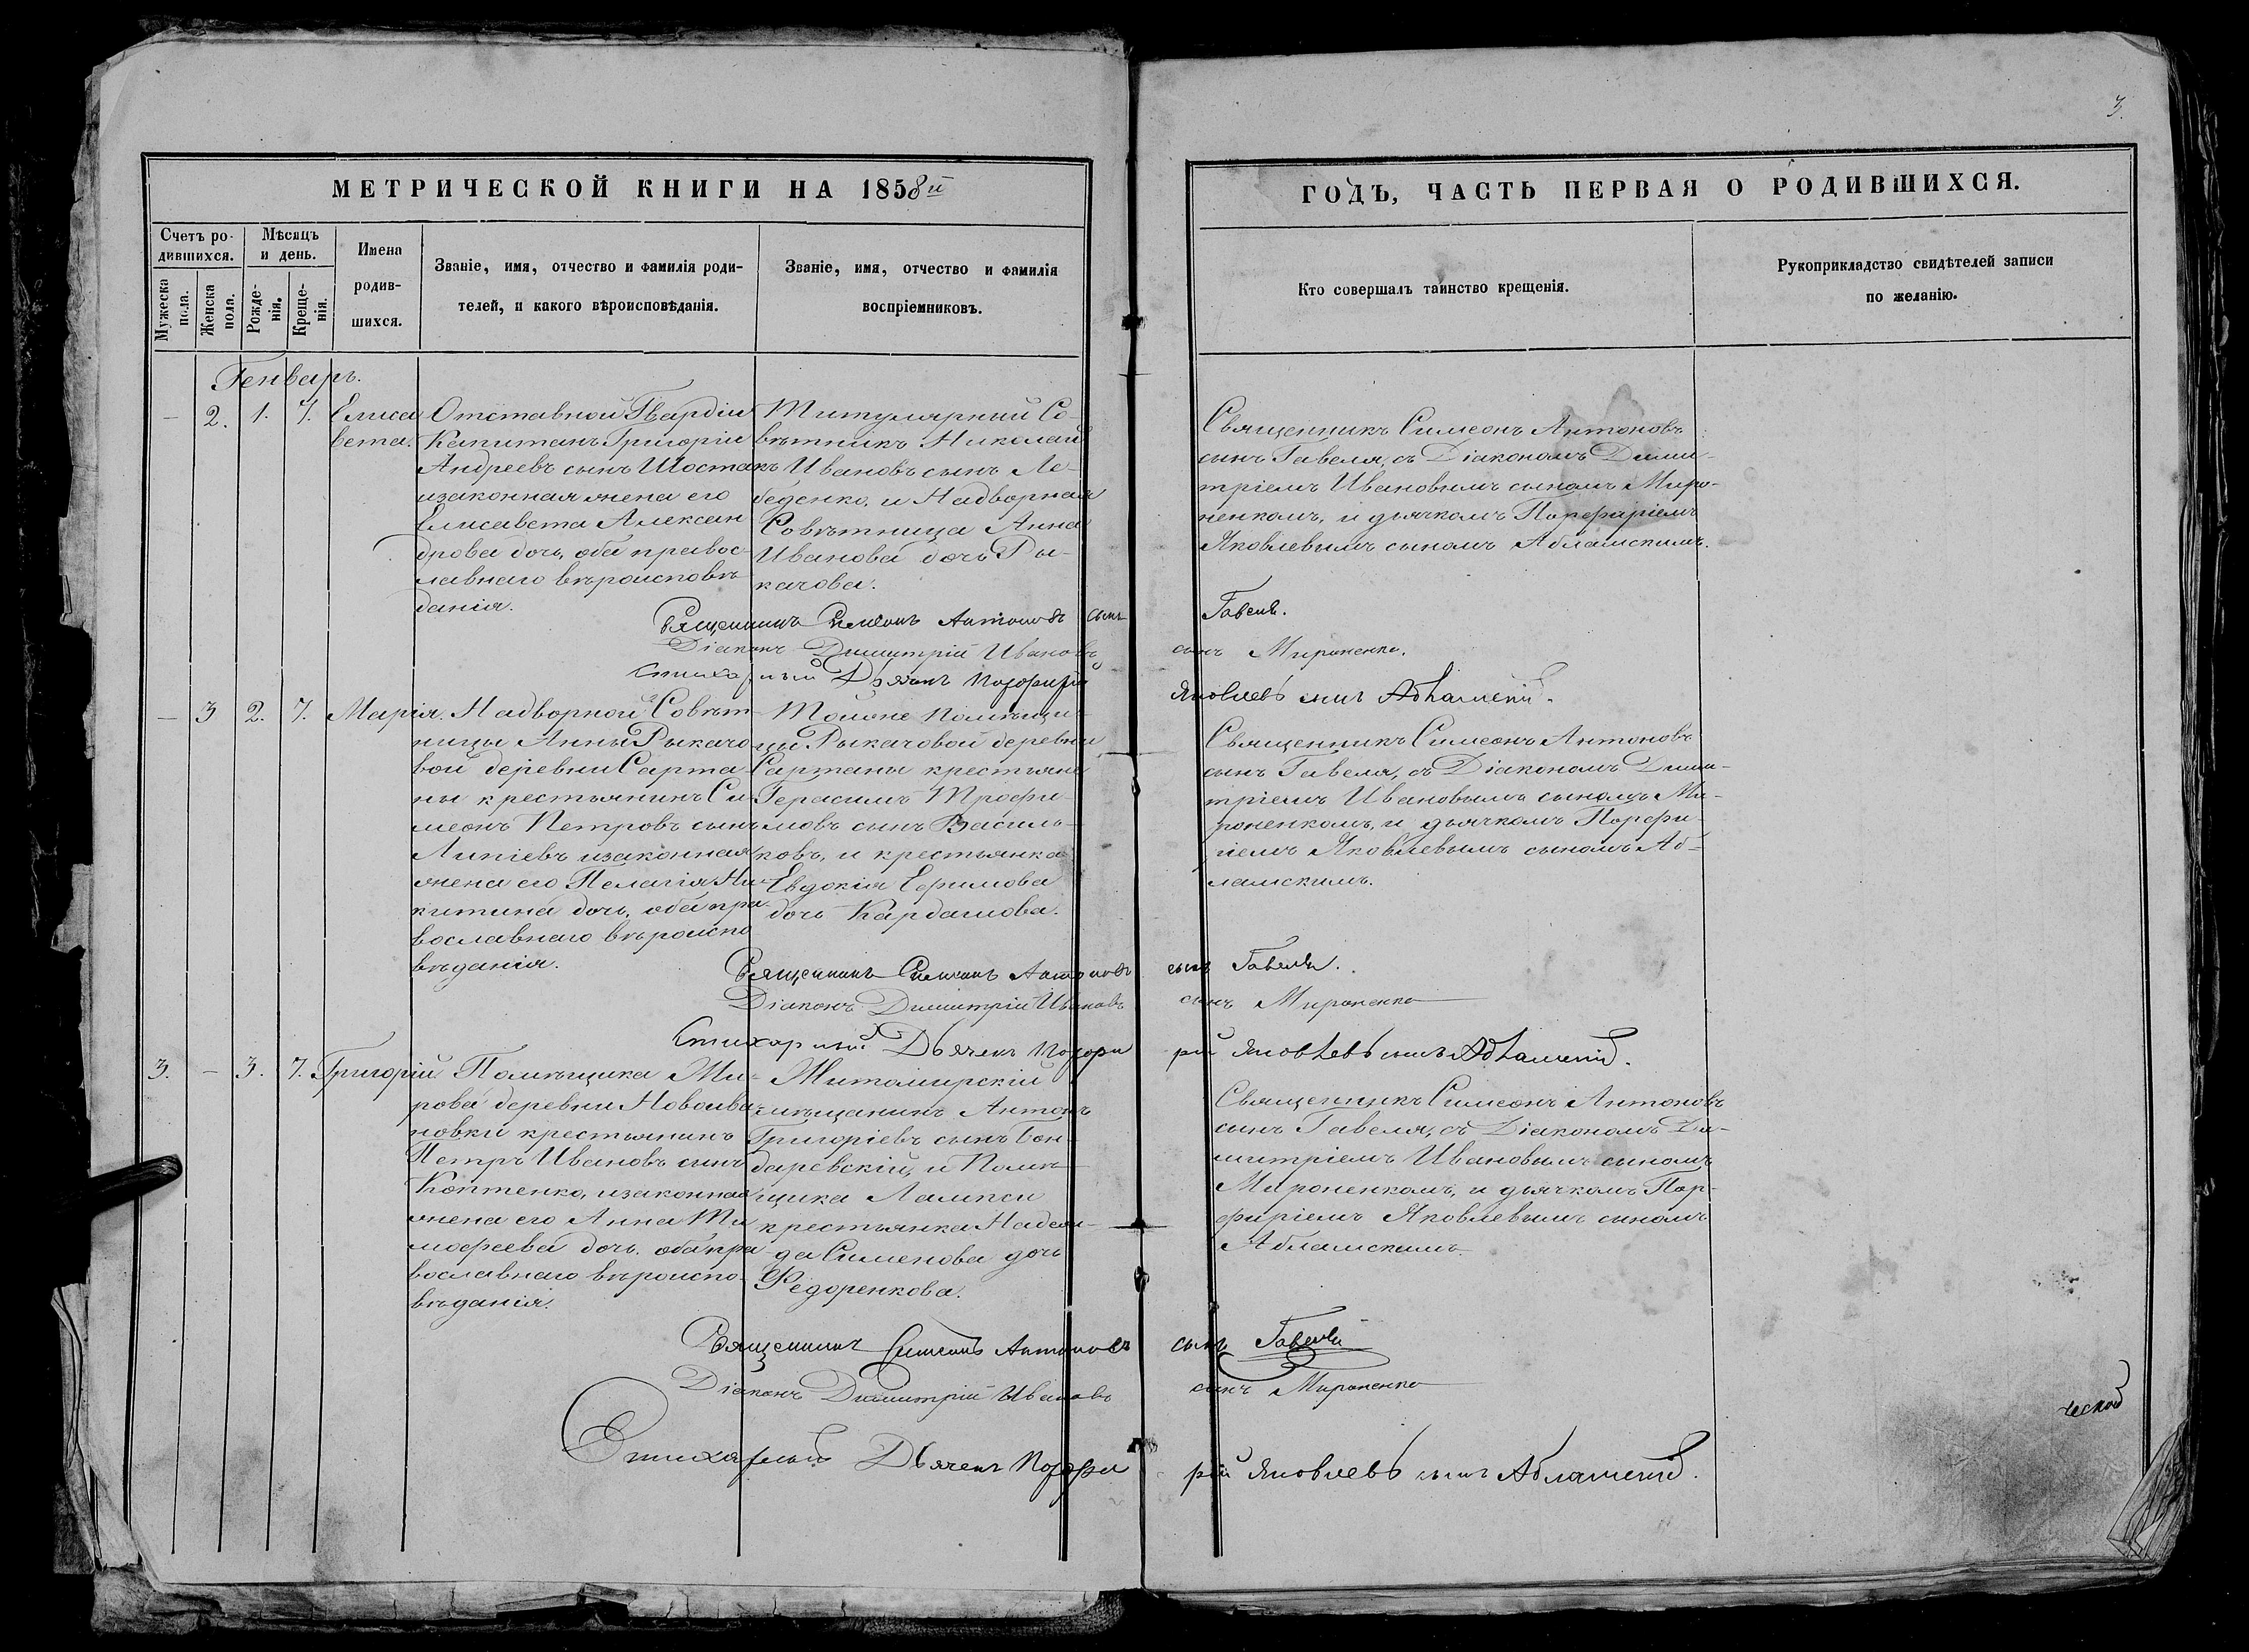 3.
МЕТРИЧЕСКОЙ КНИГИ НА 1858й
Счетъ ро-
дившихся.
Мужеска
пола.
Женска
пола.
Мѣсяцъ
и день.
Рожде-
нія.
Креще-
нія.
Имена
родив-
шихся.
Званіе, имя, отчество и фамилія роди-
телей, и какого вѣроисповѣданія.
Званіе, имя, отчество и фамилія
воспріемниковъ.
ГОДЪ, ЧАСТЬ ПЕРВАЯ О РОДИВШИХСЯ.
Кто совершалъ таинство крещенія.
Рукоприкладство свидѣтелей записи
по желанію.
Генварь.
— 2. 1. 7.
Елиса
вета.
Отставной Гвардіи
Капитанъ Григорій
Андреевъ сынъ Шостакъ
изаконная жена его
Елисавета Алексан
дрова дочь, оба правос-
лавнаго вѣроисповѣ
данія.
Титулярный Со-
вѣтникъ Николай
Ивановъ сынъ Ле-
беденко, и Надворная
Совѣтница Анна
Иванова дочь Ры-
качова.
Священникъ Симеонъ Антоновъ
сынъ Гавеля, съ Діакономъ Дими-
тріемъ Ивановымъ сыномъ Миро-
ненкомъ, и дьячкомъ Порфиріемъ
Яковлевымъ сыномъ Абламскимъ.
Священникъ Симеонъ Антоновъ сынъ Гавеля.
Діаконъ Димитрій Ивановъ сынъ Мироненко.
Стихарный Дьячекъ Порфирій Яковлевъ сынъ Абламскій.
— 3 2. 7. Марія.
Надворной Совѣт-
ницы Анны Рыкачо
вой деревни Сарта-
ны крестьянинъ Си
меонъ Петровъ сынъ
Липіевъ изаконная
жена его Пелагія Ни-
китина дочь, оба пра-
вославнаго вѣроиспо
вѣданія.
Тойоне Помѣщи-
цы Рыкачовой деревни
Сартаны крестьяне
Герасимъ Трофи-
мовъ сынъ Василь-
ковъ, и крестьянка
Евдокія Ефимова
дочь Кардашова.
Священникъ Симеонъ Антоновъ
сынъ Гавеля, съ Діакономъ Дими-
тріемъ Ивановымъ сыномъ Ми-
роненкомъ, и дьячкомъ Порфи-
ріемъ Яковлевымъ сыномъ Аб-
ламскимъ.
Священникъ Симеонъ Антоновъ сынъ Гавеля.
Діаконъ Димитрій Ивановъ сынъ Мироненко
Стихарный Дьячекъ Порфирій Яковлевъ сынъ Абламскій.
3. — 3. 7. Григорій.
Помѣщика Ми-
рова деревни Новоива-
новки крестьянинъ
Петръ Ивановъ сынъ
Коптенко, изаконная
жена его Анна Ти
мофеева дочь. оба пра
вославнаго вѣроиспо
вѣданія.
Житомирскій
мѣщанинъ Антонъ
Григоріевъ сынъ Бон-
даревскій, и Помѣ-
щика Лампси
крестьянка Надеж-
да Сименова дочь
Федоренкова.
Священникъ Симеонъ Антоновъ
сынъ Гавеля, съ Діакономъ Ди-
митріемъ Ивановымъ сыномъ
Мироненкомъ, и дьячкомъ Пор-
фиріемъ Яковлевымъ сыномъ
Абламскимъ.
Священникъ Симеонъ Антоновъ сынъ Гавеля
Діаконъ Димитрій Ивановъ сынъ Мироненко
Стихарный Дьячекъ Порфирій Яковлевъ сынъ Абламскій.
ческой